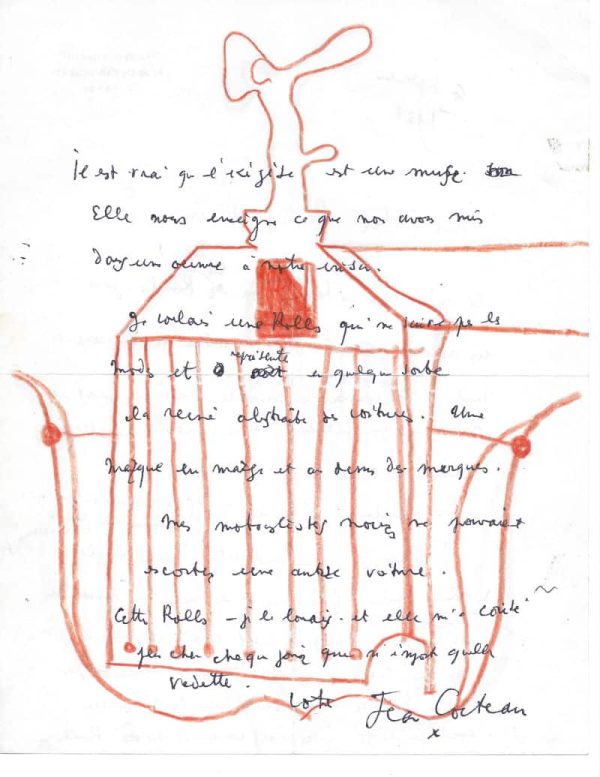 Il est vrai que l'exégèse est une muse.
Elle nous enseigne ce que nous avons mis
dans une œuvre à notre insu.
Je voulais une Rolls qui ne suive pas les
modes et représente en quelque sorte
la reine abstraite des voitures. Une
marque en marge et au dessus des marques.
Mes motocyclistes noirs ne pouvaient
escorter une autre voiture.
Cette Rolls – je la louais et elle m'a coûté
plus cher chaque jour que n'importe quelle
vedette.
votre Jean Cocteau